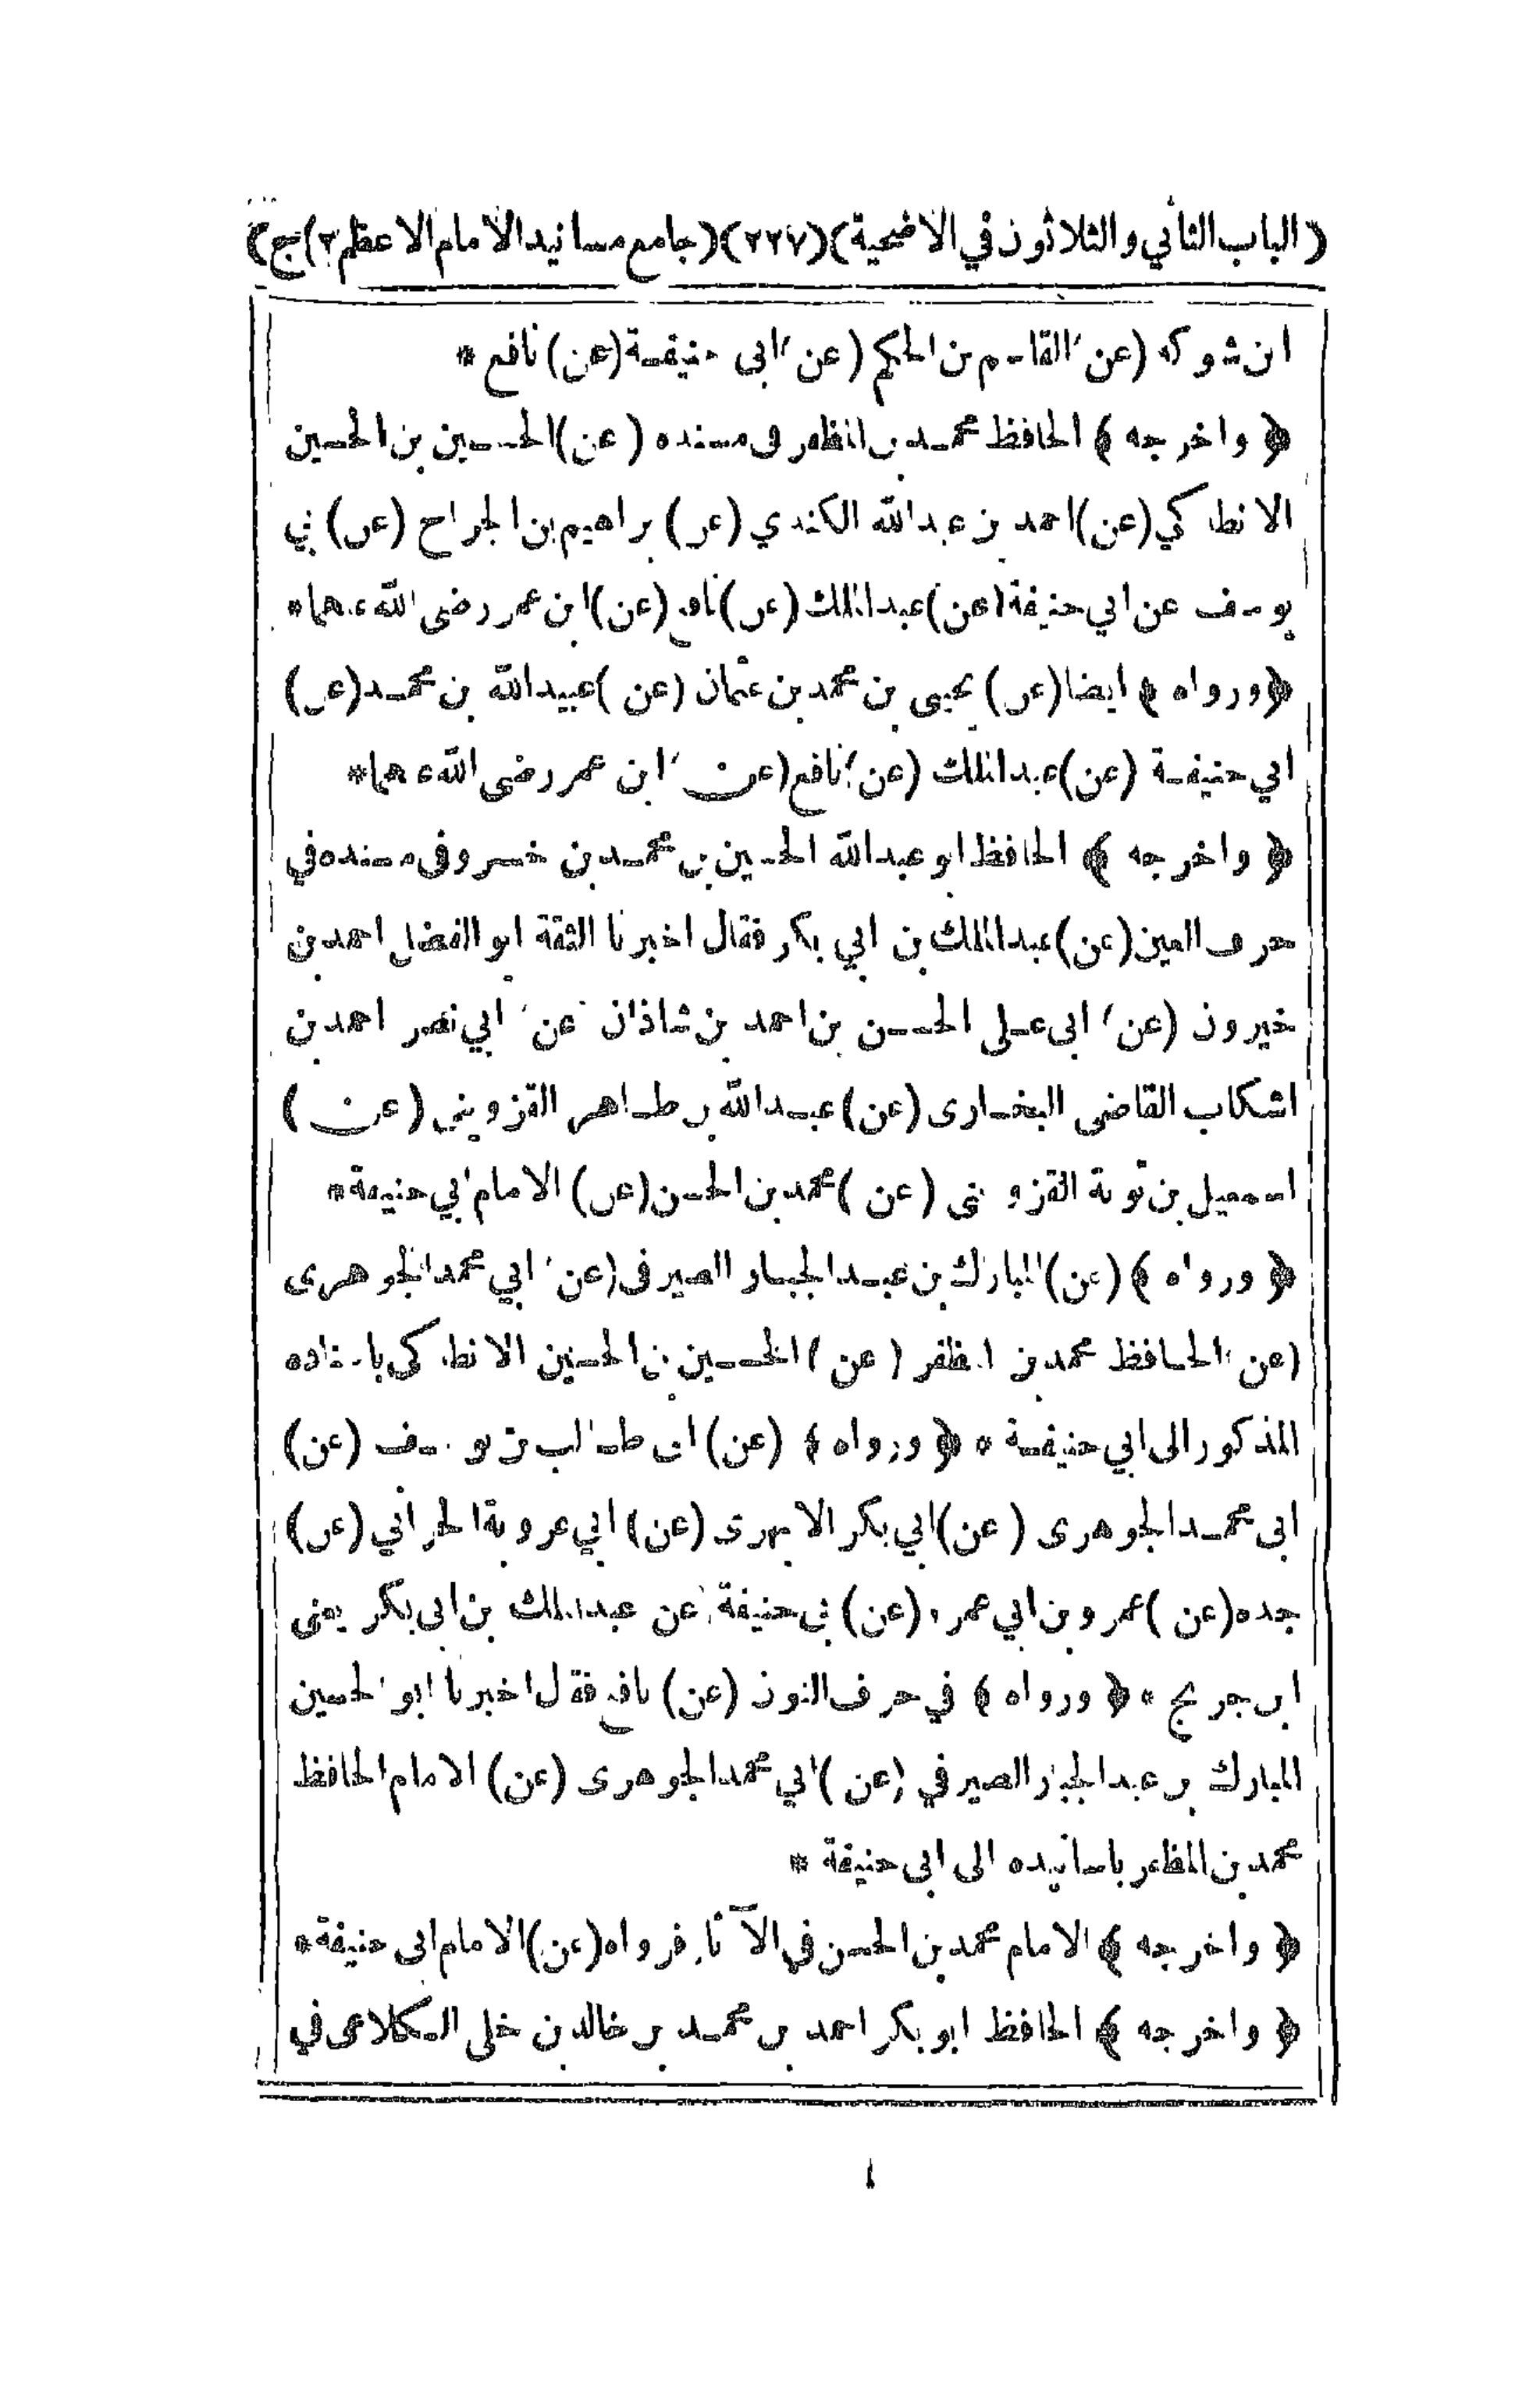 (الباب الثاني والثلاثون في الاضحية) (٢٢٧) (جامع مسانيد الامام الاعظم ٢) ج)
ابن شوكه (عن) القاسم بن الحكم (عن) ابى حنيفة (عن) نافع *
﴿ واخرجه ﴾ الحافظ محمد بن المظفر فى مسنده (عن) الحسين بن الحسين
الانطاكي (عن) احمد بن عبدالله الكندي (عن) ابراهيم بن الجراح (عن) ابي
يوسف عن ابي حنيفة (عن) عبدالملك (عن) نافع (عن) ابن عمر رضى الله عنهما *
﴿ ورواه ﴾ ايضا (عن) يحيى بن محمد بن عثمان (عن) عبيدالله بن محمد (عن)
ابي حنيفة (عن) عبدالملك (عن) نافع (عن) ابن عمر رضى الله عنهما *
﴿ واخرجه ﴾ الحافظ ابو عبدالله الحسين بن محمد بن خسرو فى مسنده في
حرف العين (عن) عبدالملك بن ابي بكر فقال اخبرنا الثقة ابو الفضل احمد بن
خيرون (عن) ابى على الحسن بن احمد بن شاذان (عن) ابي نصر احمد بن
اشكاب القاضى البخارى (عن) عبدالله بن طاهر القزويني (عن)
اسمعيل بن توبة القزوينى (عن) محمد بن الحسن (عن) الامام ابي حنيفة *
﴿ ورواه ﴾ (عن) المبارك بن عبدالجبار الصيرفى (عن) ابي محمد الجوهرى
(عن) الحافظ محمد بن المظفر (عن) الحسين بن الحسين الانطاكى باسناده
المذكور الى ابي حنيفة * ﴿ ورواه ﴾ (عن) ابى طالب بن يوسف (عن)
ابى محمد الجوهرى (عن) ابي بكر الابهرى (عن) ابي عروبة الحراني (عن)
جده (عن) عمرو بن ابي عمرو (عن) ابى حنيفة عن عبدالملك بن ابى بكر يعنى
ابن جريج * ﴿ ورواه ﴾ في حرف النون (عن) نافع فقال اخبرنا ابو الحسين
المبارك بن عبدالجبار الصيرفي (عن) ابي محمد الجوهرى (عن) الامام الحافظ
محمد بن المظفر باسانيده الى ابى حنيفة *
﴿ واخرجه ﴾ الامام محمد بن الحسن في الآثار فرواه (عن) الامام ابى حنيفة *
﴿ واخرجه ﴾ الحافظ ابو بكر احمد بن محمد بن خالد بن خلى الكلاعى في